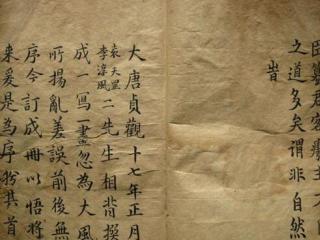 之道多矣謂非自然
旹
大唐貞觀十七年正月
袁天罡
李淳風
二先生相背撰
成一寫一畫忽為大風
所揚亂差誤前後無
序今訂成冊以悟將
来爰是為序
其首